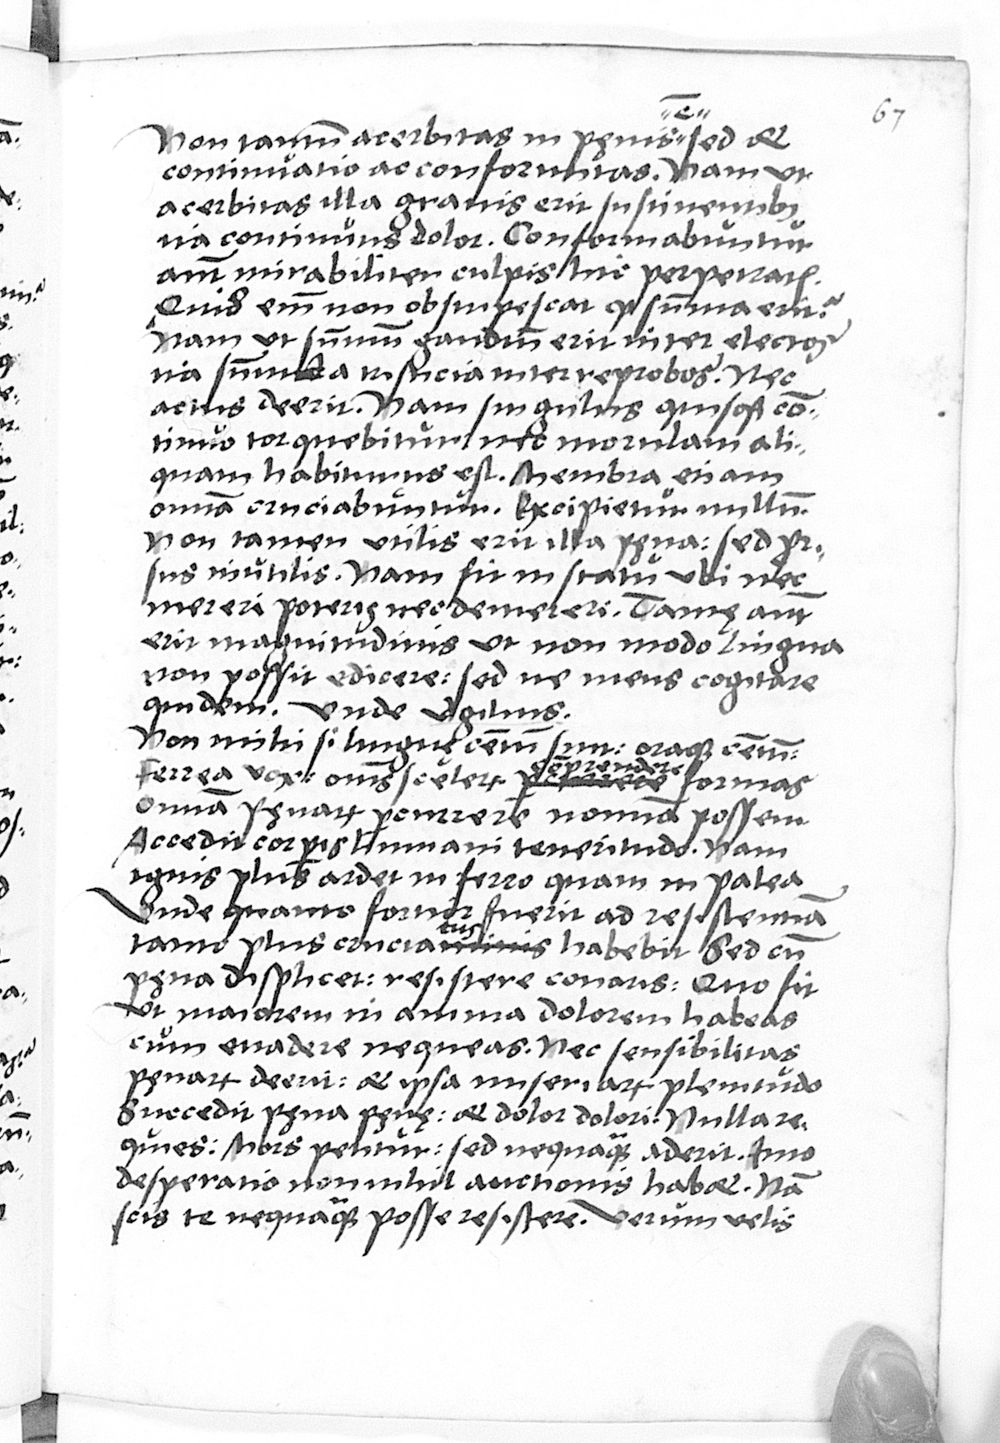 67
Non tantũ acerbitas in pęnis "ē" sed &
continuatio ac conformitas. Nam ut
acerbitas illa grauis erit sustinentib;
ita continuus dolor. Conformabuntur
aũt mirabiliter culpis hic perpetrat.
Quid em̃ non obstupescat q sũma erit?
Nam ut sũmũ gaudiũ erit inter electos
ita sũma tristicia inter reprobos. Nec
actus deerit. Nam singulus quisq cõ-
tinuo torquebitur nec morulam ali-
quam habiturus est. Membra etiam
omnia cruciabuntur. Excipietur nullũ.
Non tamen utilis erit illa pęna: sed pr-
sus inutilis. Nam fit in statu ubi nec
mereri poteris nec demereri. Tantę aũt
erit magnitudinis ut non modo lingua
non possit edicere: sed ne mens cogitare
quidem. Unde Vgilius.
Non mihi si linguę cẽtũ sint: oraq cẽtũ:
Ferrea vox: om̃s scelerꝝ cõprendere formas
Omnia pęnarꝝ pcurrere nomina possem
Accedit corpis humani teneritudo. Nam
ignis plus ardet in ferro quam in palea
Unde quanto fortior fuerit ad resistentiã
tanto plus cruciatus habebit Sed cũ
pęna displicet: resistere conaris: Quo fit
ut maiorem in anima dolorem habeas
cum euadere nequeas. Nec sensibilitas
pęnarꝝ deerit: & ipsa miseriarꝝ plenitudo
Succedit pęna pęnę: & dolor dolori. Nulla re-
quies: Mors petitur: sed nequaq aderit. Imo
desperatio non nihil auctionis hab&. Nã
scis te nequaq posse resistere. Verum uelis